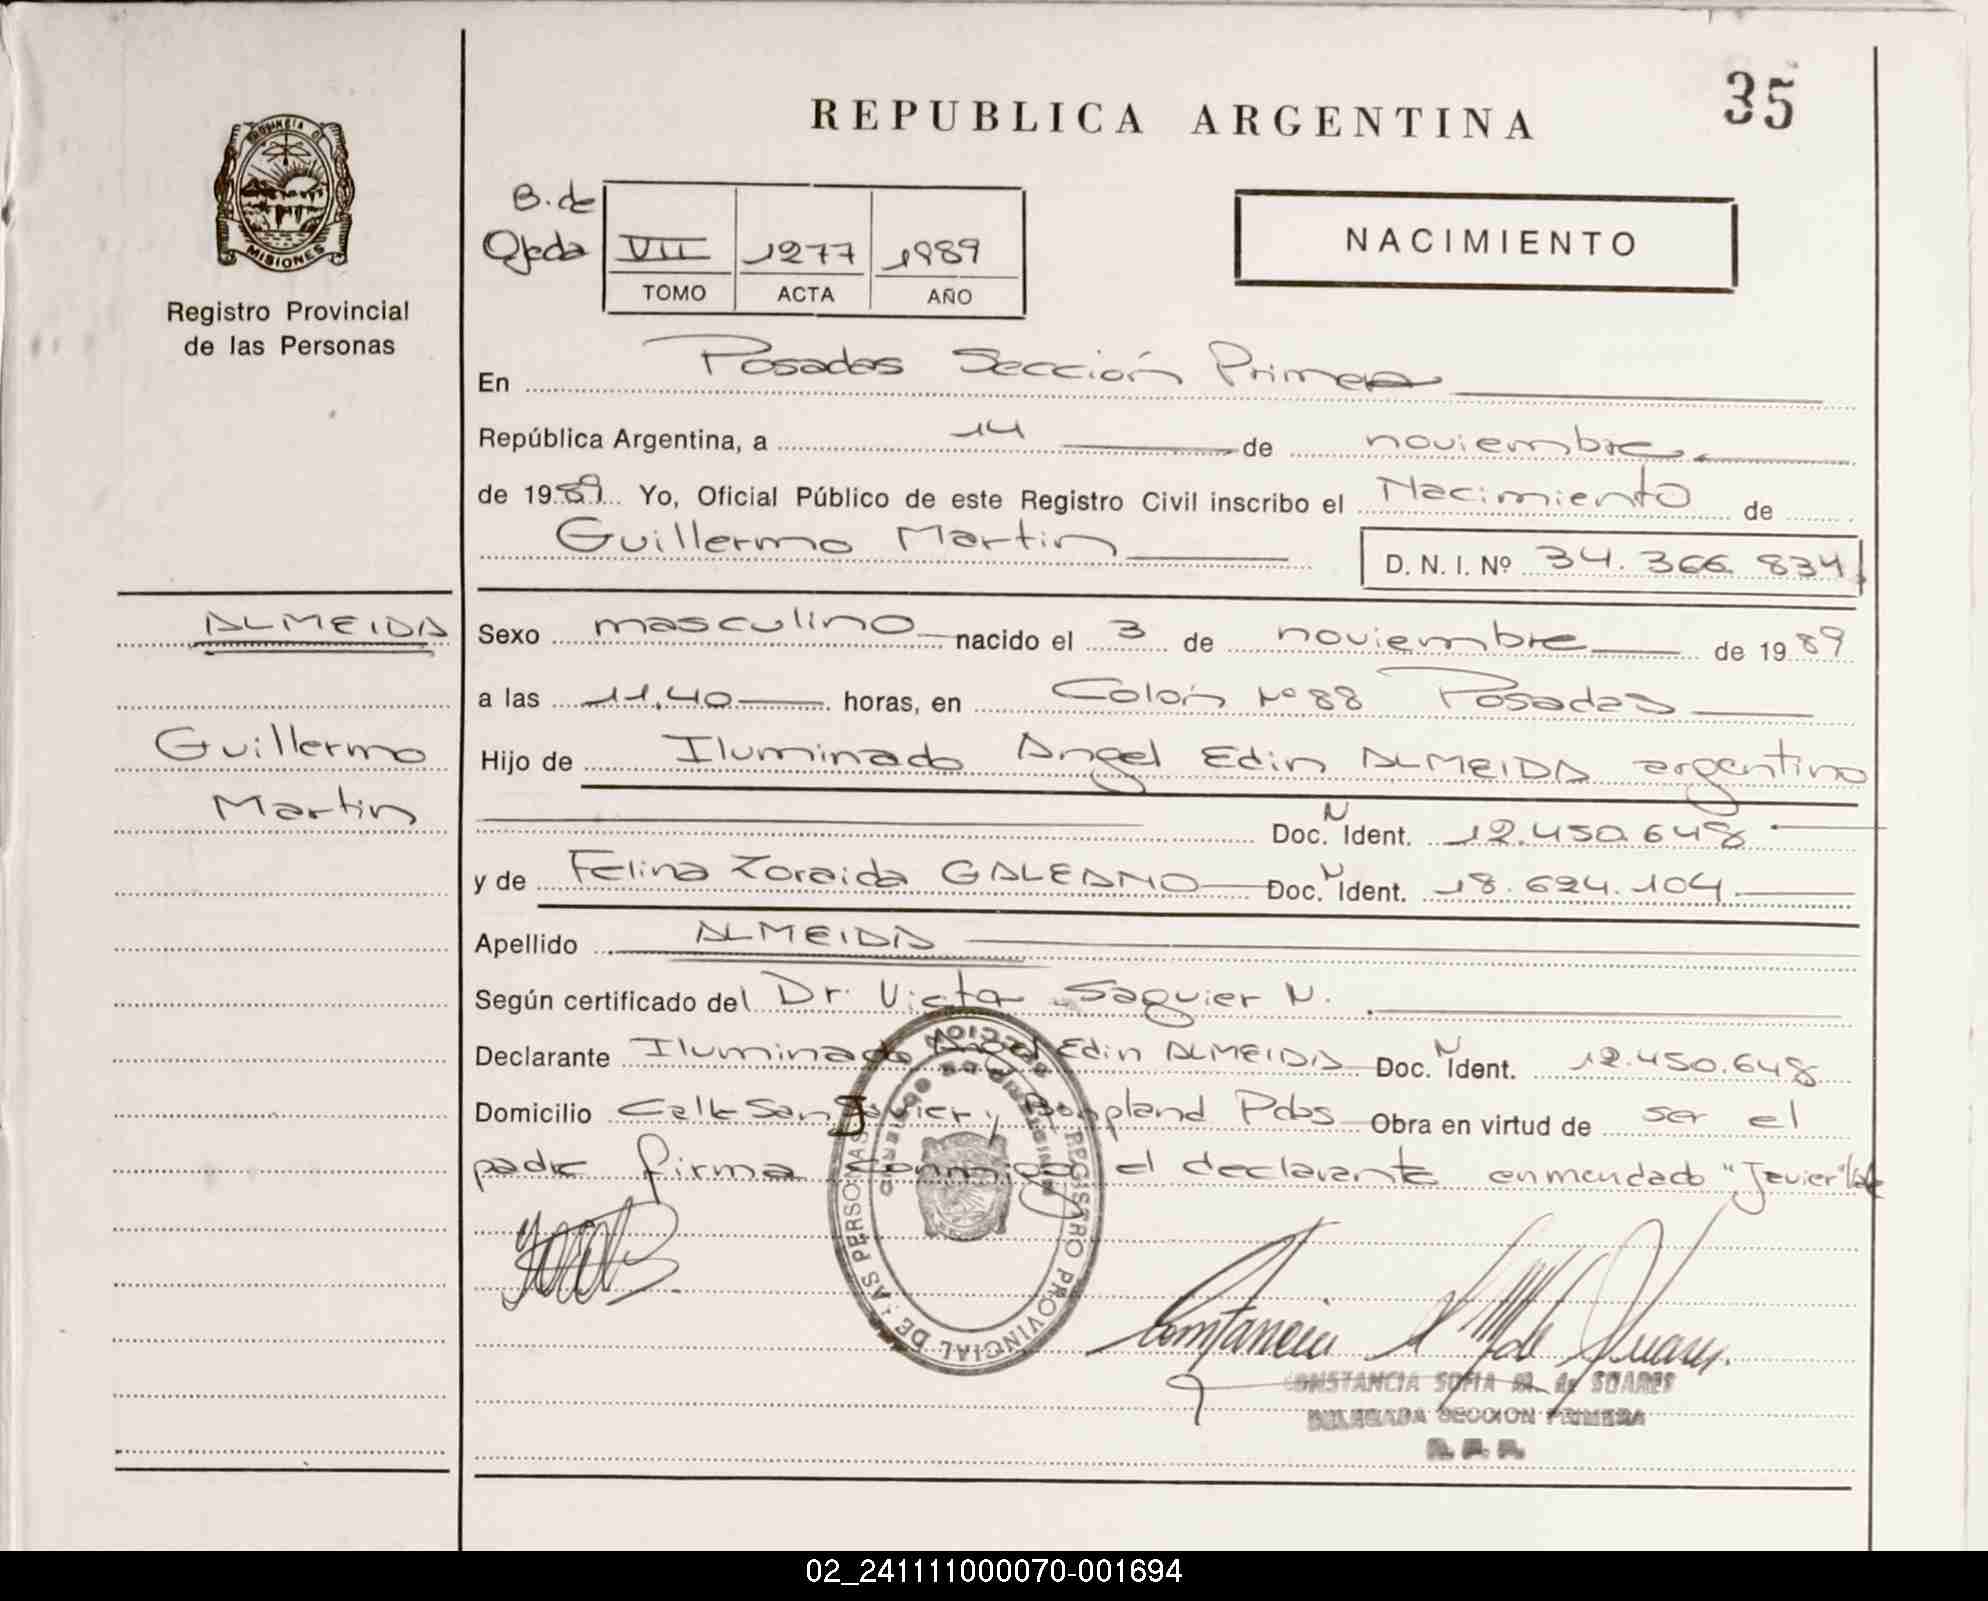 REPUBLICA ARGENTINA
35
PROVINCIA D
MISIONES
Registro Provincial
de las Personas
B. de
Ojeda
VII
1277
1989
TOMO
ACTA
AÑO
NACIMIENTO
En Posadas Sección Primera
República Argentina, a 14 de noviembre
de 1989 Yo, Oficial Público de este Registro Civil inscribo el Nacimiento de
Guillermo Martin
D. N. I. Nº 34.366.834
ALMEIDA
Guillermo
Martin
Sexo masculino nacido el 3 de noviembre de 1989
a las 11,40 horas, en Colón Nº 88 Posadas
Hijo de Iluminado Angel Edin ALMEIDA argentino
Doc. N Ident. 12.450.648
y de Felina Zoraida GALEANO Doc. N Ident. 18.624.104
Apellido ALMEIDA
Según certificado del Dr. Victor Saguier N.
Declarante Iluminado Angel Edin ALMEIDA Doc. N Ident. 12.450.648
Domicilio Calle San Javier y Bonpland Pdas Obra en virtud de ser el
padre firma conmigo el declarante enmendado "Javier" Vale
REGISTRO PROVINCIAL DE LAS PERSONAS
Constancia S M de Suares
CONSTANCIA SOFIA M. de SUARES
DELEGADA SECCION PRIMERA
R. P. P.
02_241111000070-001694